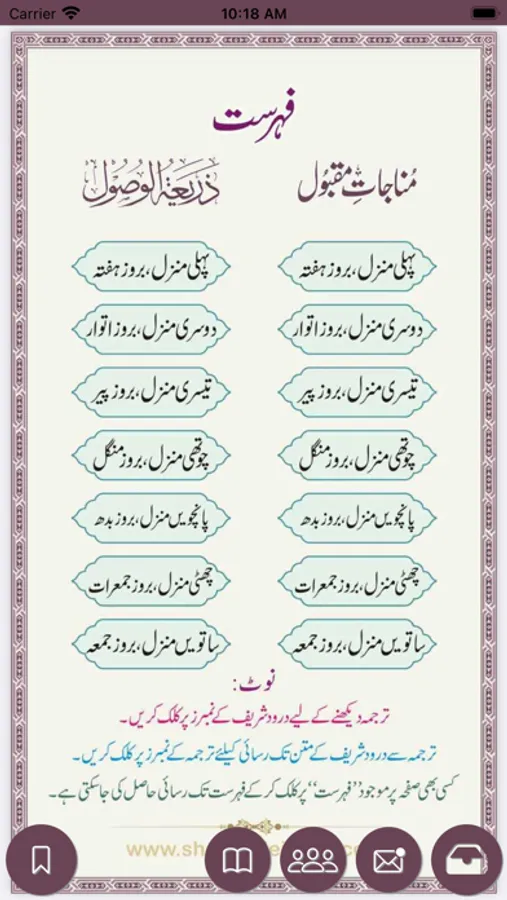 Carrier 10:18 AM
فہرست
مُناجاتِ مقبُول ذَرِیعَۃُ الوُصُول
پہلی منزل، بروز ہفتہ پہلی منزل، بروز ہفتہ
دوسری منزل، بروز اتوار دوسری منزل، بروز اتوار
تیسری منزل، بروز پیر تیسری منزل، بروز پیر
چوتھی منزل، بروز منگل چوتھی منزل، بروز منگل
پانچویں منزل، بروز بدھ پانچویں منزل، بروز بدھ
چھٹی منزل، بروز جمعرات چھٹی منزل، بروز جمعرات
ساتویں منزل، بروز جمعہ ساتویں منزل، بروز جمعہ
نوٹ:
ترجمہ دیکھنے کے لیے درود شریف کے نمبرز پر کلک کریں۔
ترجمہ سے درود شریف کے متن تک رسائی کیلئے ترجمہ کے نمبرز پر کلک کریں۔
کسی بھی صفحہ پر موجود ”فہرست“ پر کلک کر کے فہرست تک رسائی حاصل کی جاسکتی ہے۔
www.sh